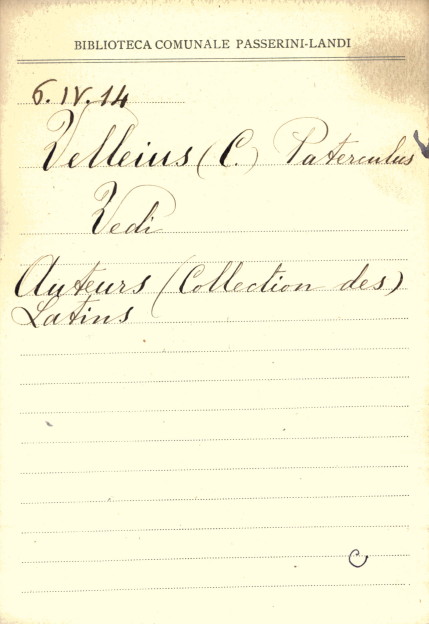 BIBLIOTECA COMUNALE PASSERINI-LANDI
6.IV.14
Velleius (C.) Paterculus
Vedi
Auteurs (Collection des)
Latins
C